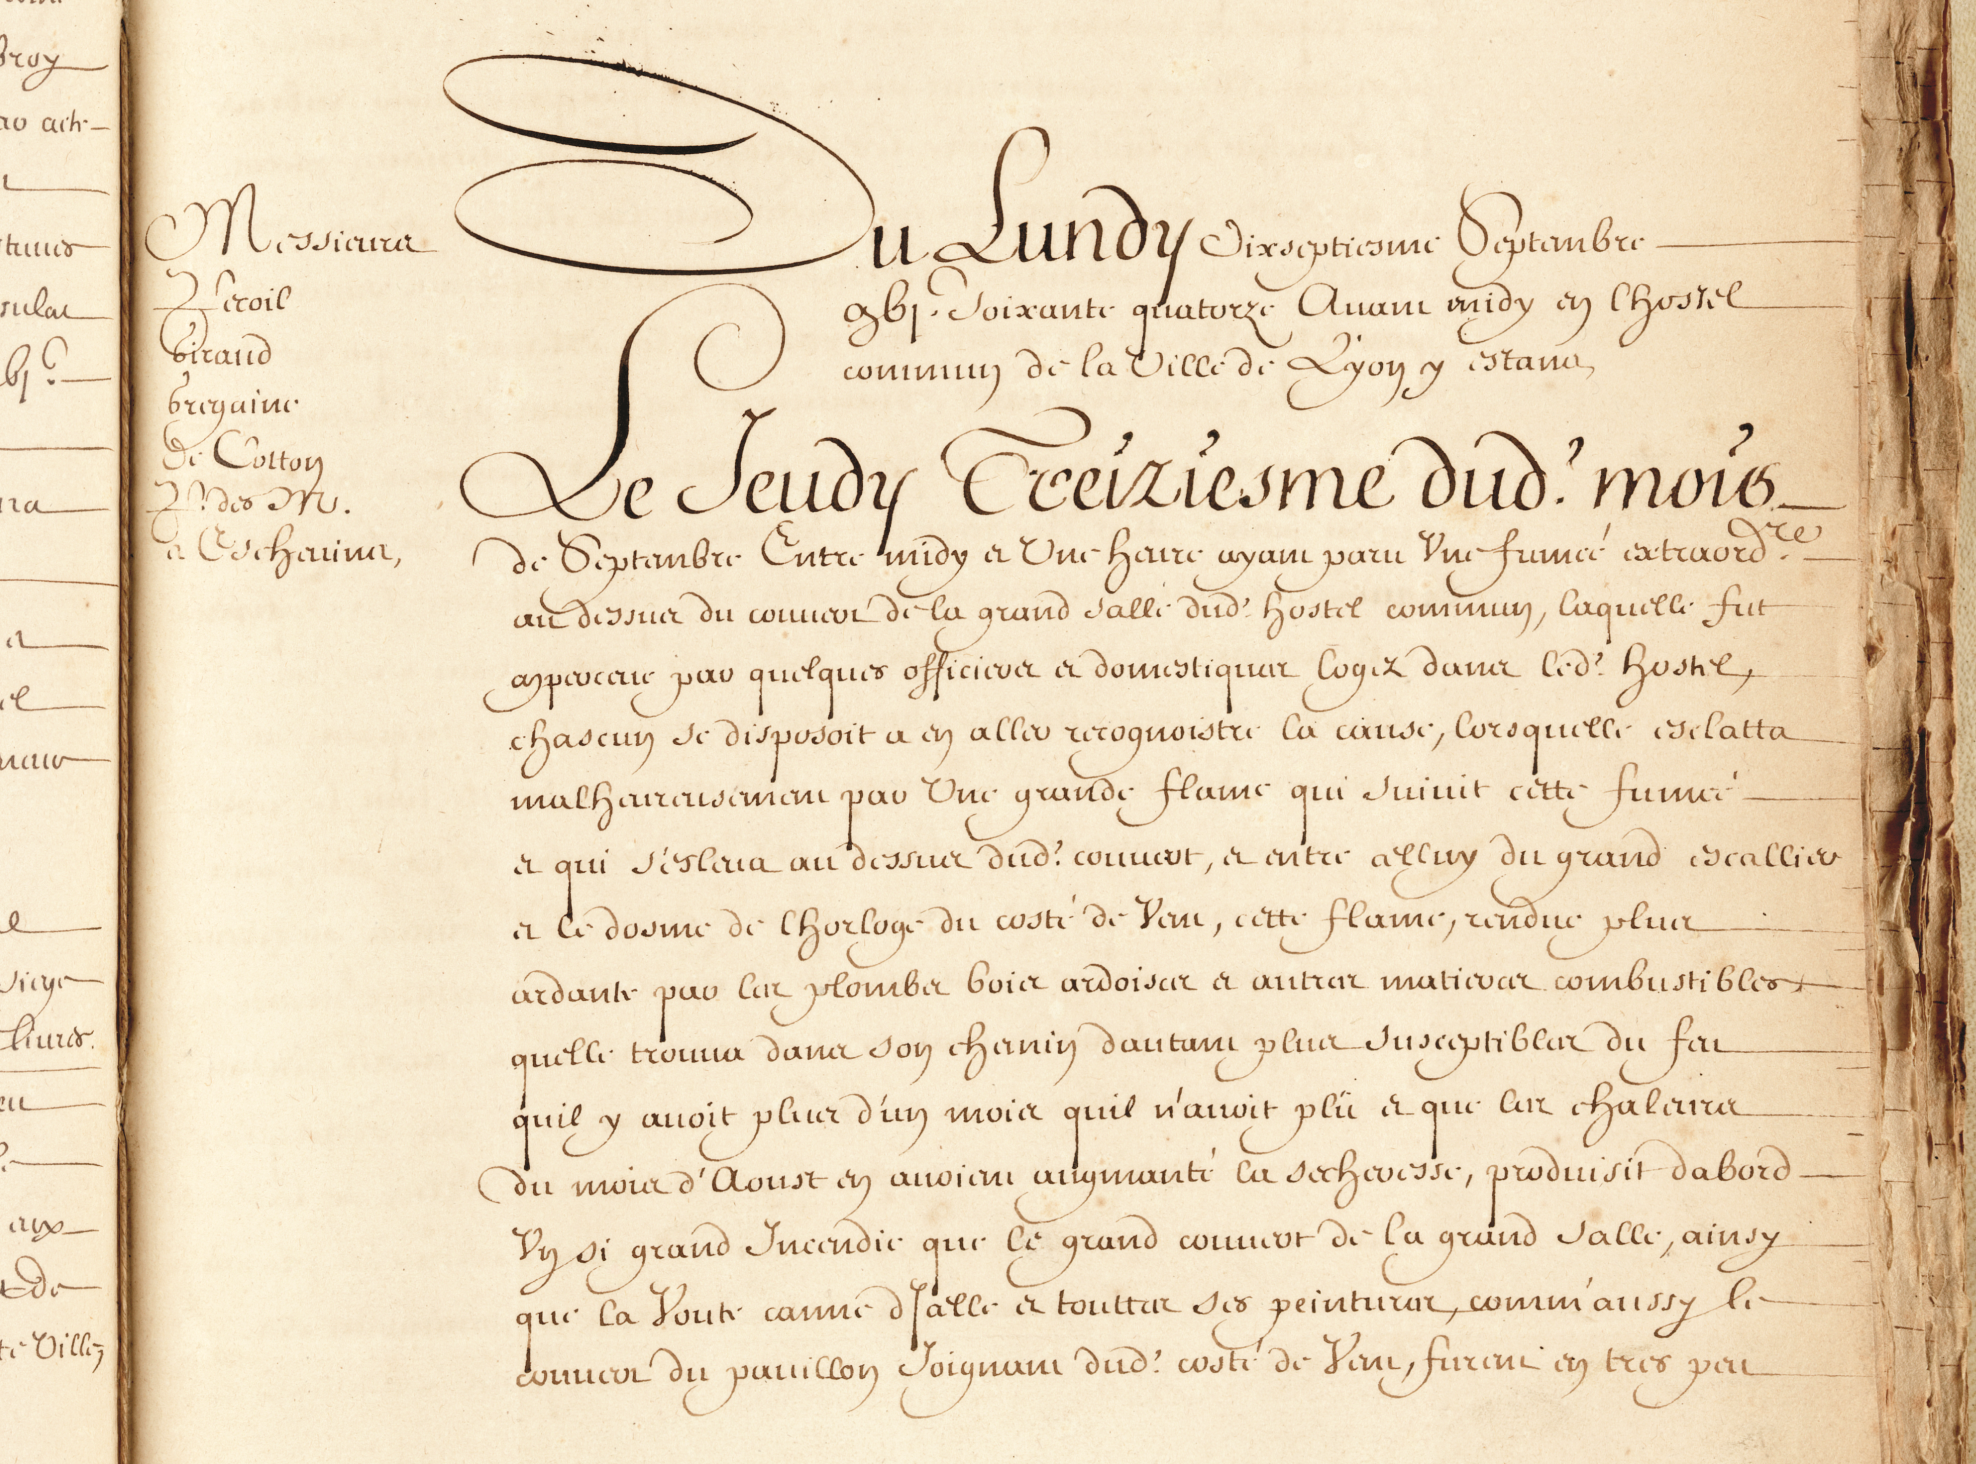 Messieurs
Giraud
bregaine
de Cotton
Pr des M.
et Eschevins,
Du Lundy Dixseptiesme Septembre
gbjc Soixante quatorze Avant midy en lhostel
commun de la Ville de Lyon y estans,
Le Jeudy Treiziesme dud. mois
de Septembre Entre midy et Une heure ayant paru Vne fumée extraordre
au dessus du couvert de la grand salle dud. hostel commun, laquelle fut
apperceue par quelques officiers et domestiques logez dans led. hostel,
chascun se disposoit a en aller recognoistre la cause, lorsquelle esclatta
malheureusement par Une grande flame qui suivit cette fumée
et qui s'esleva au dessus dud. couvert, et entre celluy du grand escallier
et le dosme de lhorloge du costé de Vent, cette flame, rendue plus
ardante par les plombs bois ardoises et autres matieres combustibles
quelle trouva dans son chemin dautant plus susceptibles du feu
quil y avoit plus d'un mois quil n'avoit plü et que les chaleurs
du mois d'Aoust en avoient augmanté la secheresse, produisit dabord
Vn si grand Incendie que le grand couvert de la grand salle, ainsy
que la Voute canne d salle et touttes ses peintures, comm'aussy le
couvert du pavillon Joignant dud. costé de Vent, furent en tres peu